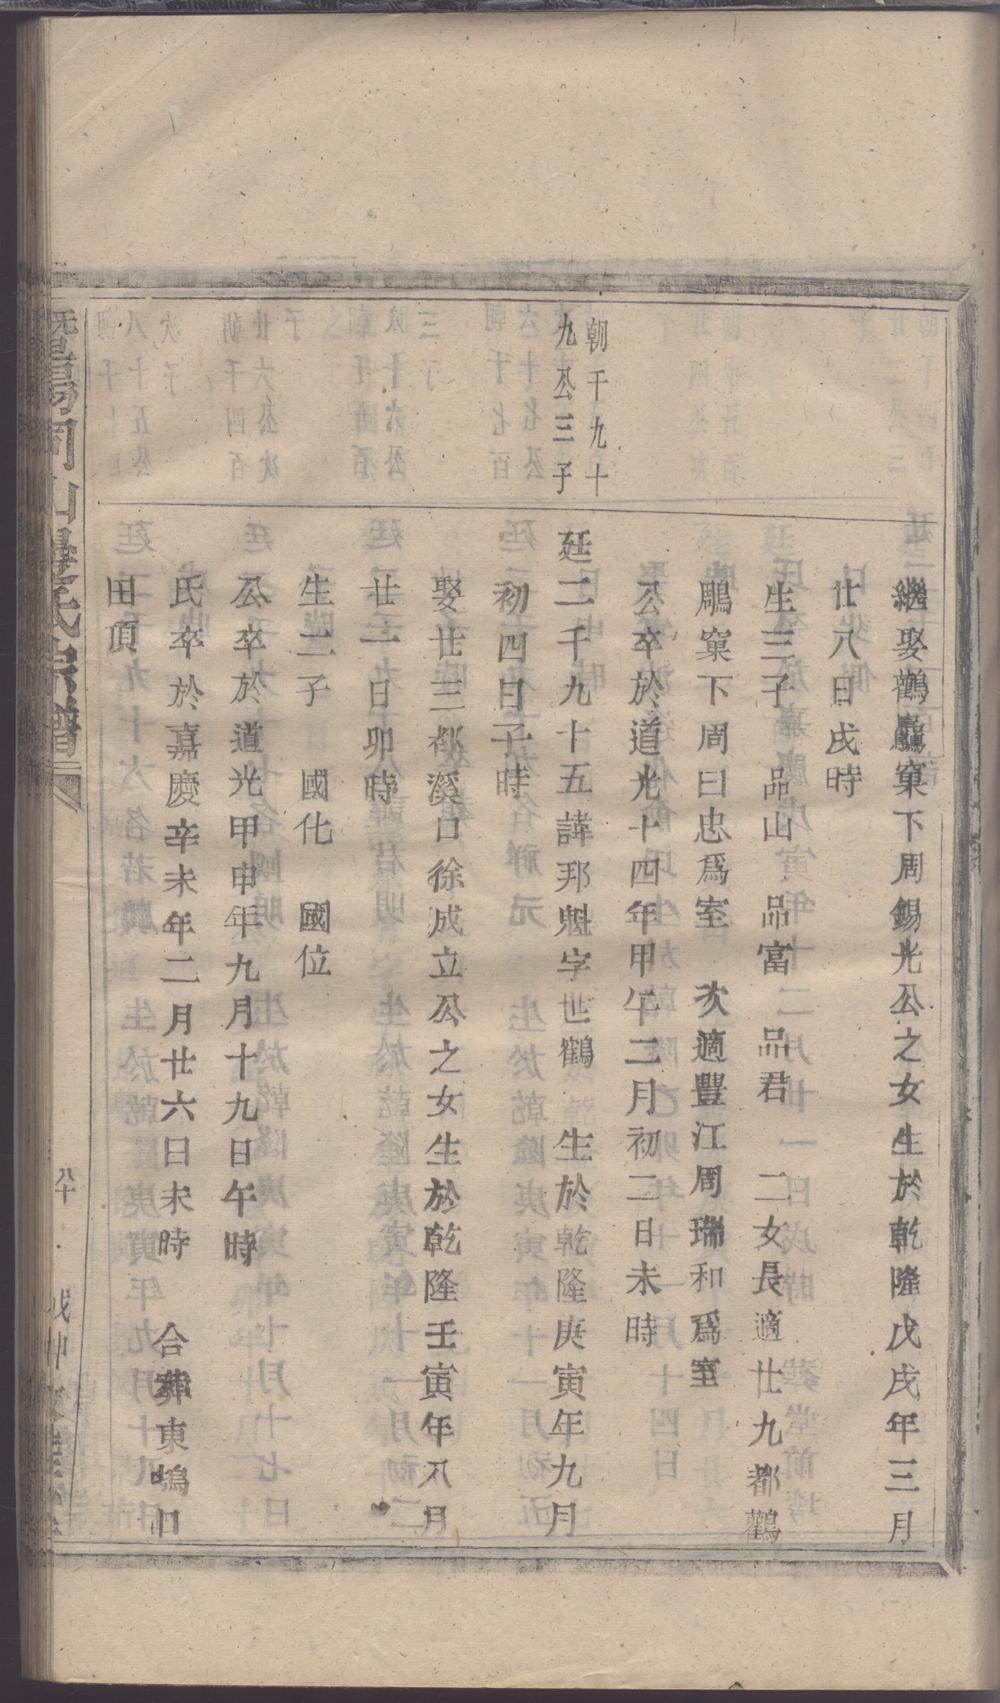 繼娶鸛鸕窠下周錫光公之女生於乾隆戊戌年三月
廿八日戌時
生三子　品山　品富　品君　二女長適廿九都鸛
鵰窠下周曰忠爲室　次適豐江周瑞和爲室
公卒於道光十四年甲午二月初二日未時
朝千九十
九公三子
廷二千九十五諱邦魁字世鶴　生於乾隆庚寅年九月
初四日子時
娶廿三都溪口徐成立公之女生於乾隆壬寅年八月
廿一日卯時
生二子　國化　國位
公卒於道光甲申年九月十九日午時
氏卒於嘉慶辛未年二月廿六日未時　合葬東塢口
田頂
暨陽同山邊氏宗譜
八十